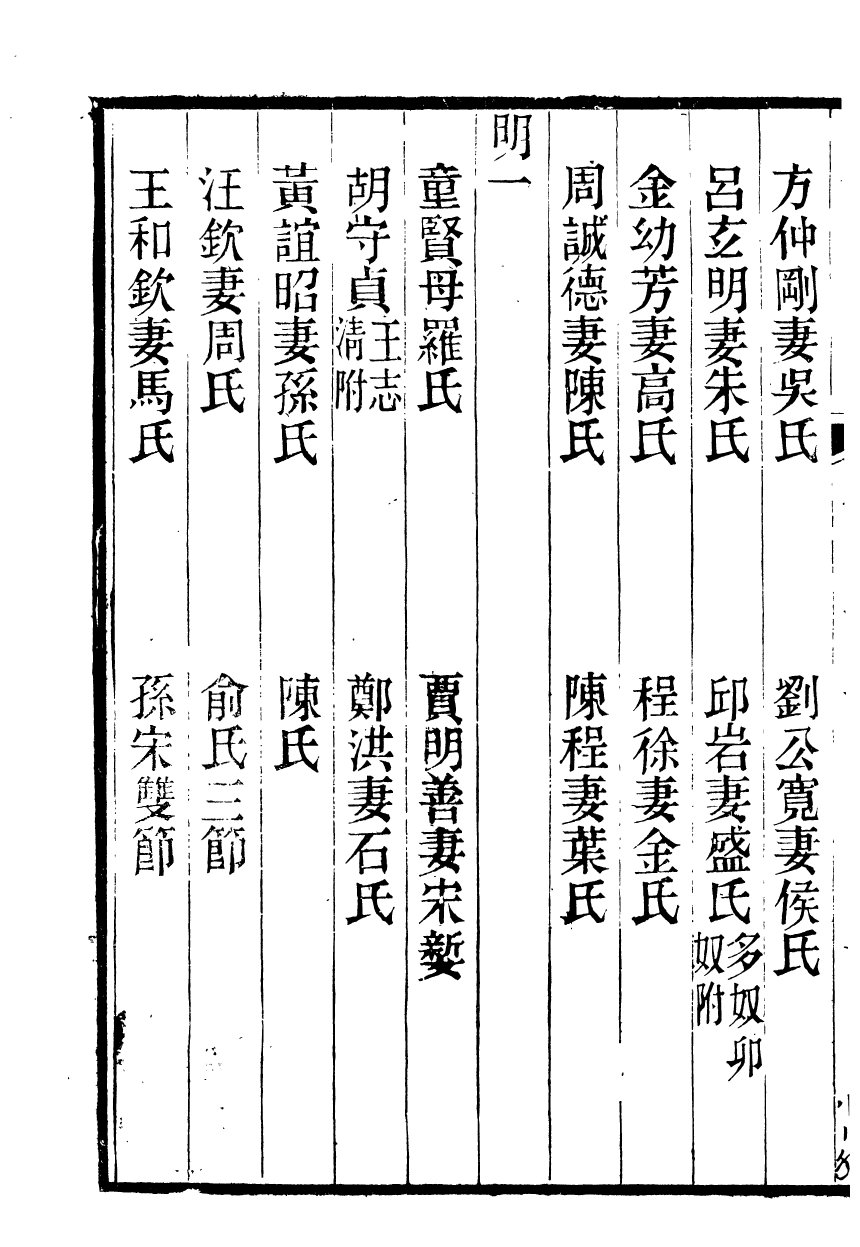 方仲剛妻吳氏　劉公寬妻侯氏
呂玄明妻朱氏　邱岩妻盛氏多奴卯奴附
金幼芳妻高氏　程徐妻金氏
周誠德妻陳氏　陳程妻葉氏
明一
童賢母羅氏　賈明善妻宋媝
胡守貞王志淸附　鄭洪妻石氏
黃誼昭妻孫氏　陳氏
汪欽妻周氏　俞氏三節
王和欽妻馬氏　孫宋雙節